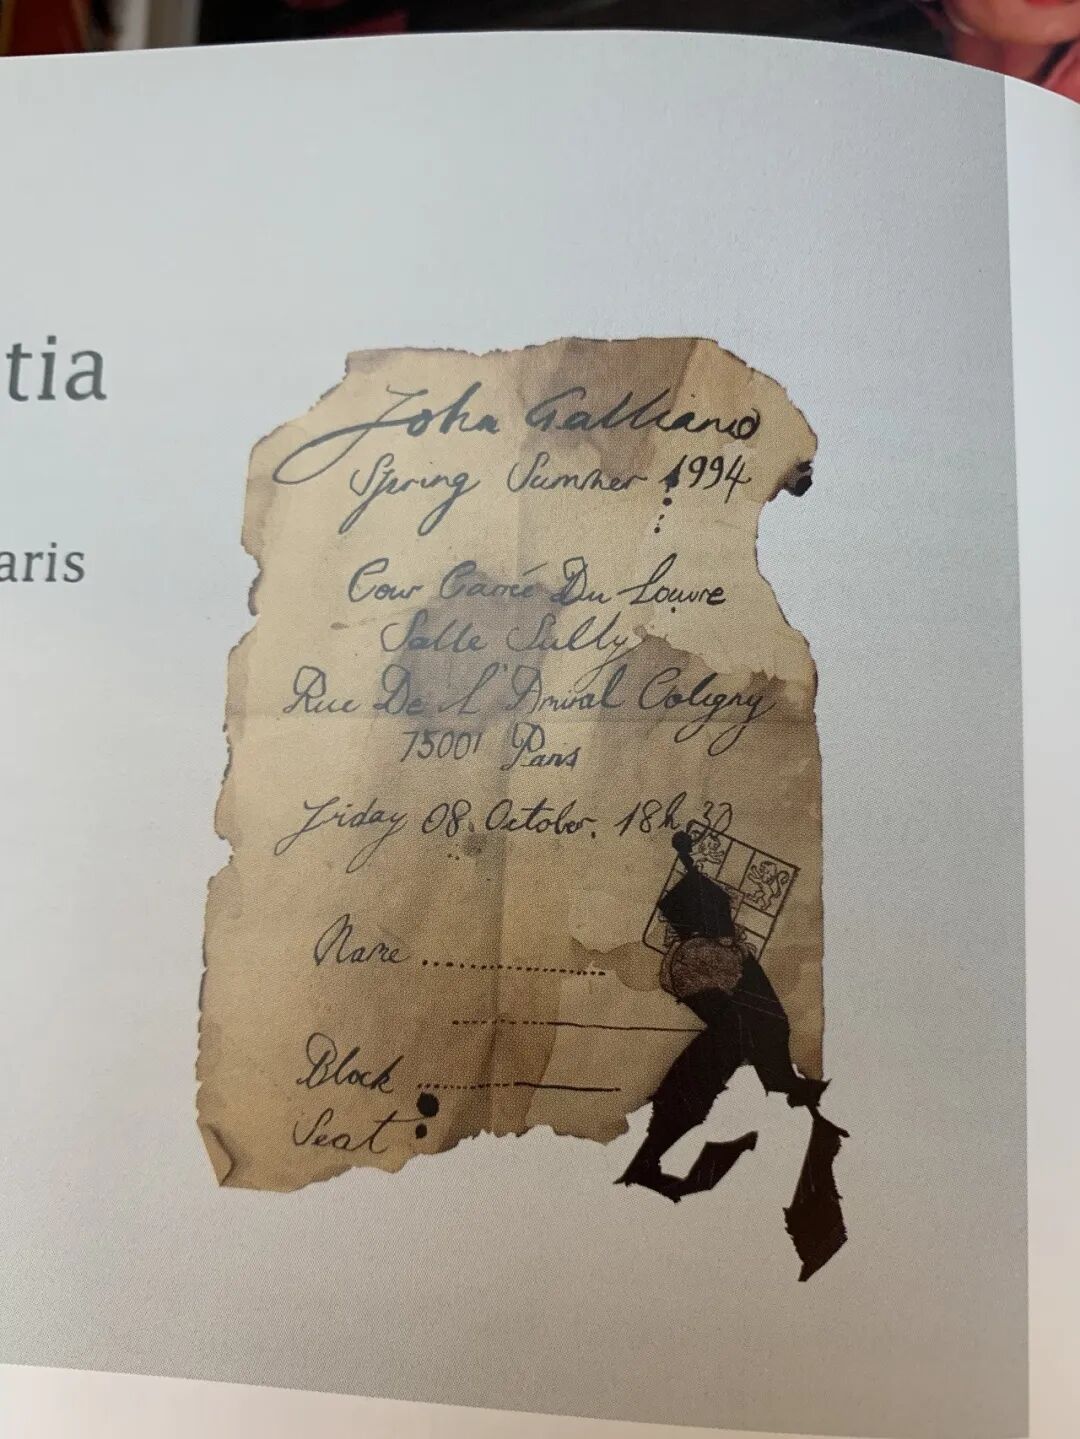 tia
aris
John Galliano
Spring Summer 1994
Cour Carrée Du Louvre
Salle Sully
Rue De L'Amiral Coligny
75001 Paris
Friday 08. October. 18h.30
Name
Block
Seat